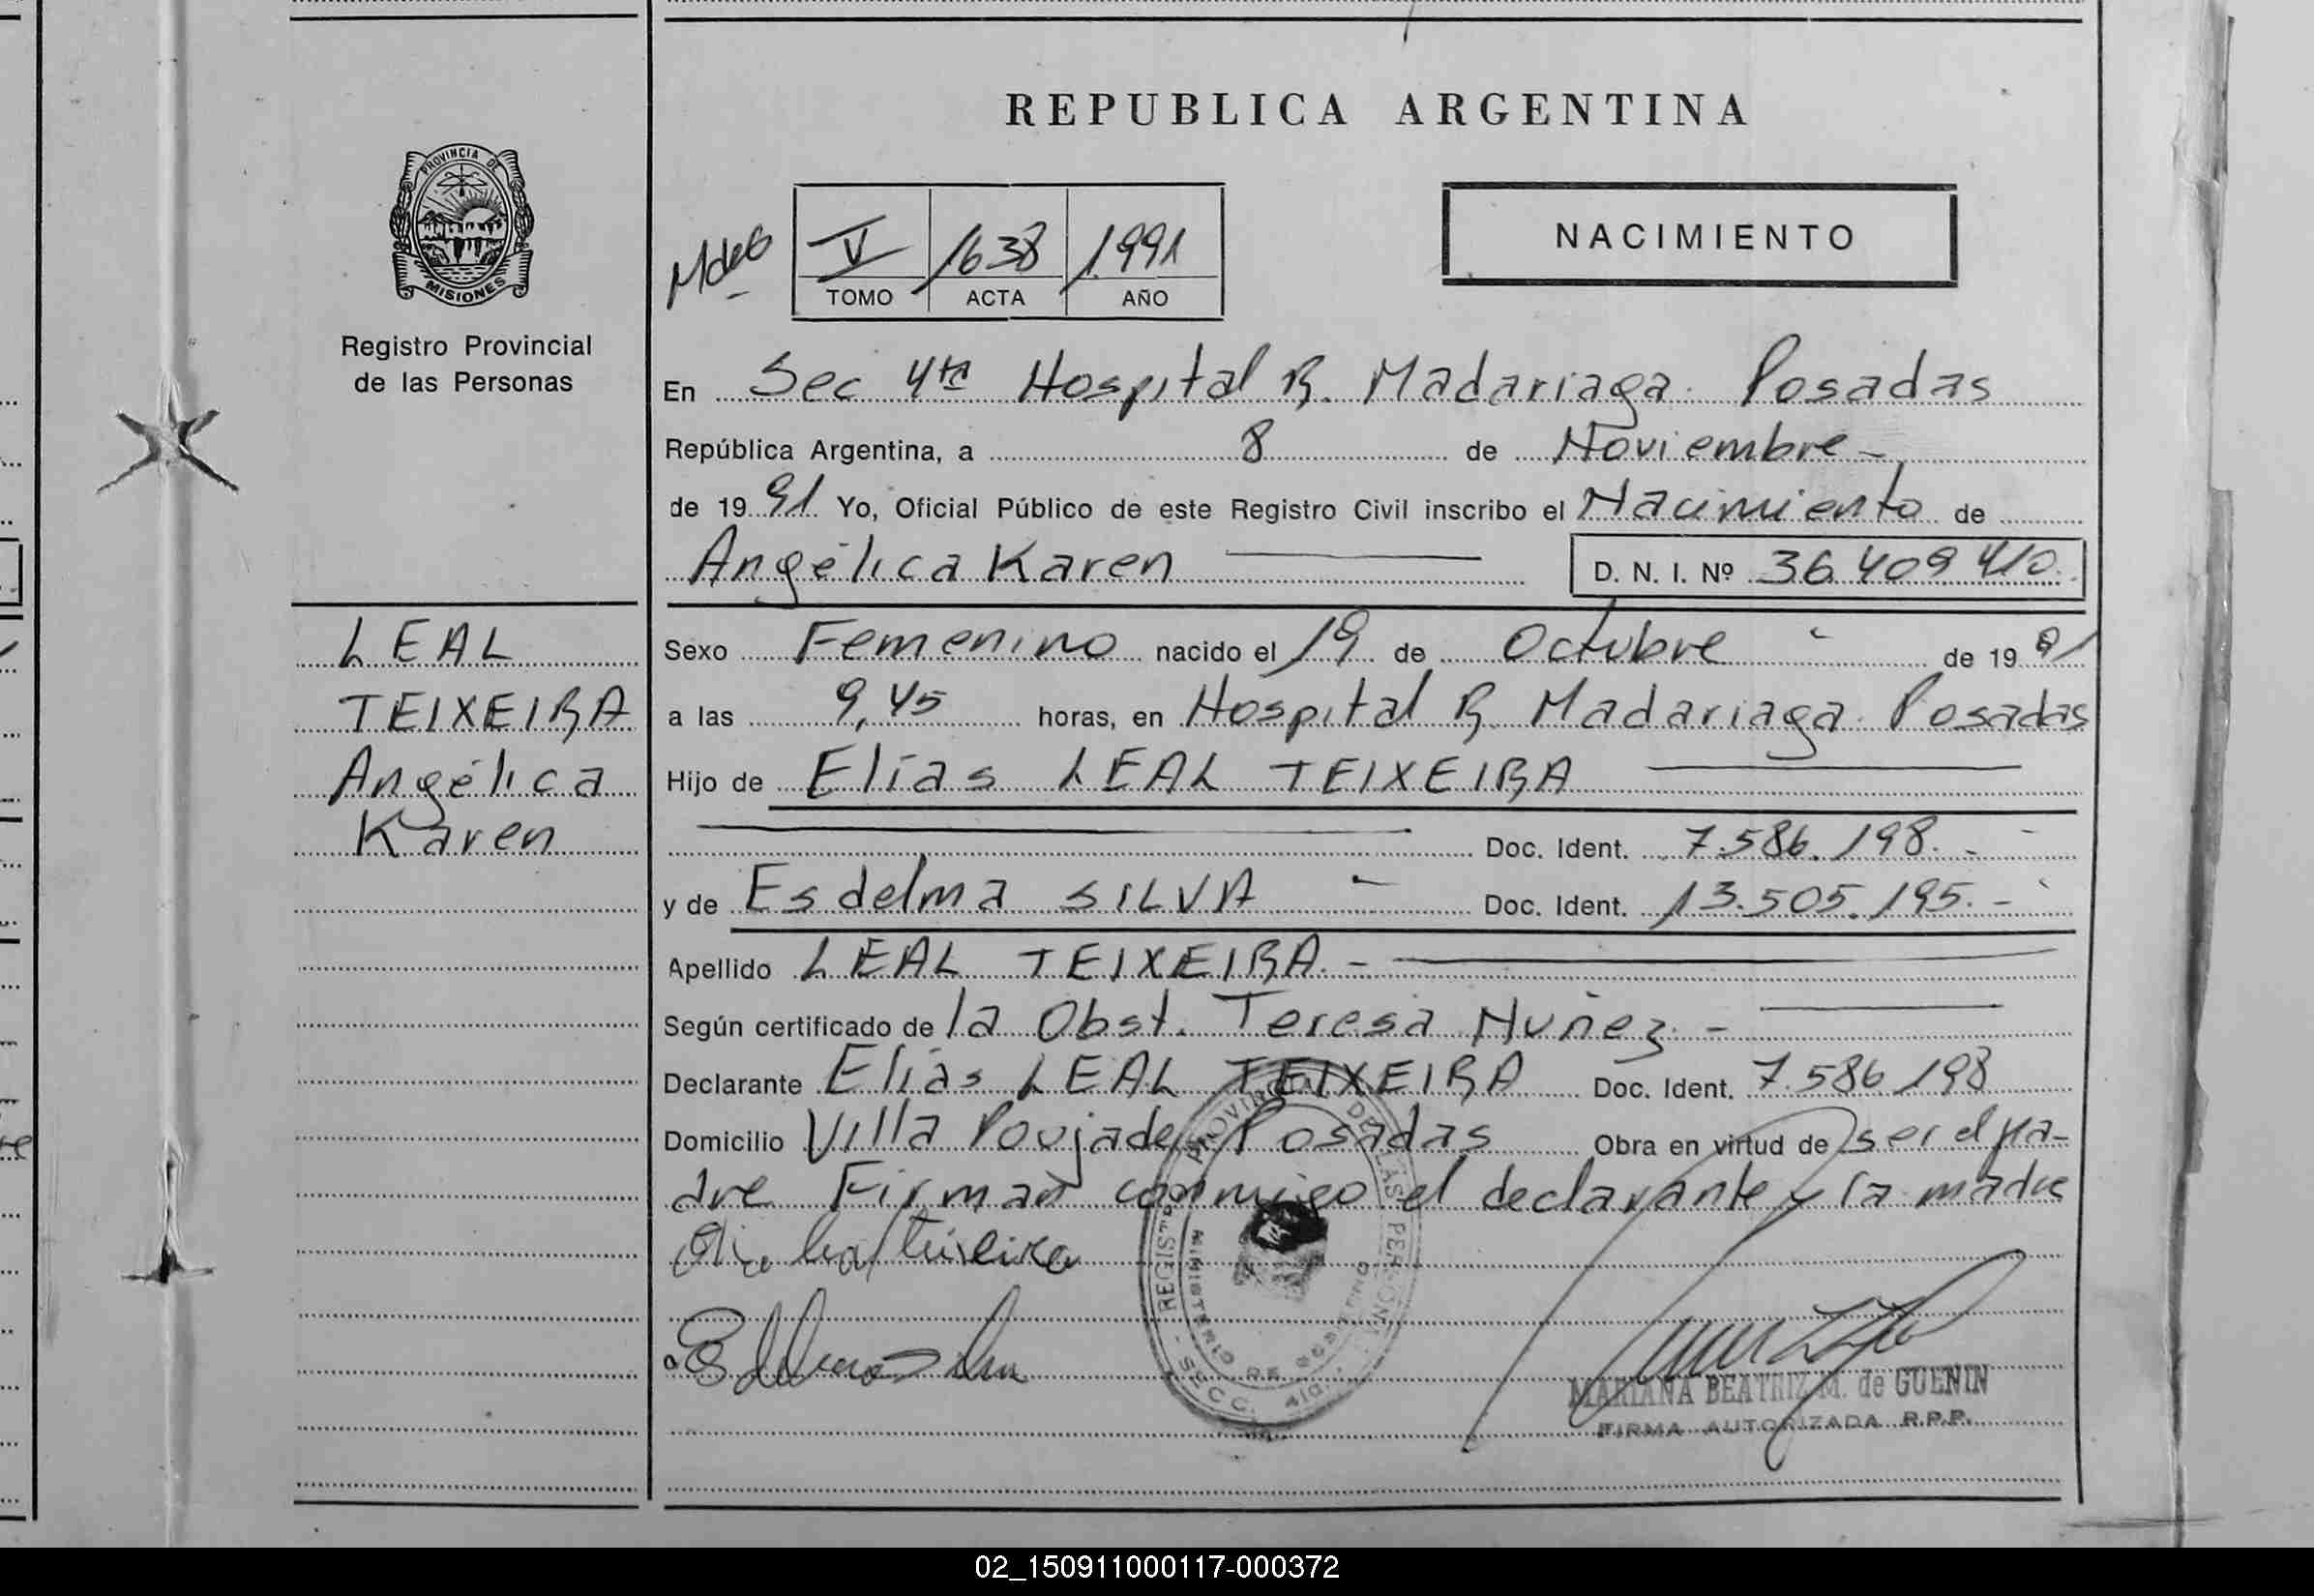 REPUBLICA ARGENTINA
PROVINCIA DE
MISIONES
Registro Provincial
de las Personas
V 1638 1991
TOMO ACTA AÑO
NACIMIENTO
En Sec 4ta Hospital R. Madariaga. Posadas
República Argentina, a 8 de Noviembre -
de 1991 Yo, Oficial Público de este Registro Civil inscribo el Nacimiento de
Angélica Karen D. N. I. Nº 36.409.410.
LEAL
TEIXEIRA
Angélica
Karen
Sexo Femenino nacido el 19 de Octubre - de 1991
a las 9,45 horas, en Hospital R. Madariaga. Posadas
Hijo de Elías LEAL TEIXEIRA
Doc. Ident. 7.586.198. -
y de Esdelma SILVA - Doc. Ident. 13.505.195. -
Apellido LEAL TEIXEIRA. -
Según certificado de la Obst. Teresa Nuñez -
Declarante Elías LEAL TEIXEIRA Doc. Ident. 7.586.198
Domicilio Villa Poujade, Posadas Obra en virtud de ser el pa-
dre Firman conmigo el declarante y la madre
REGISTRO PROVINCIAL DE LAS PERSONAS
MINISTERIO DE GOBIERNO
SECC. 4ta.
MARIANA BEATRIZ M. de GUENIN
FIRMA AUTORIZADA R.P.P.
02_150911000117-000372